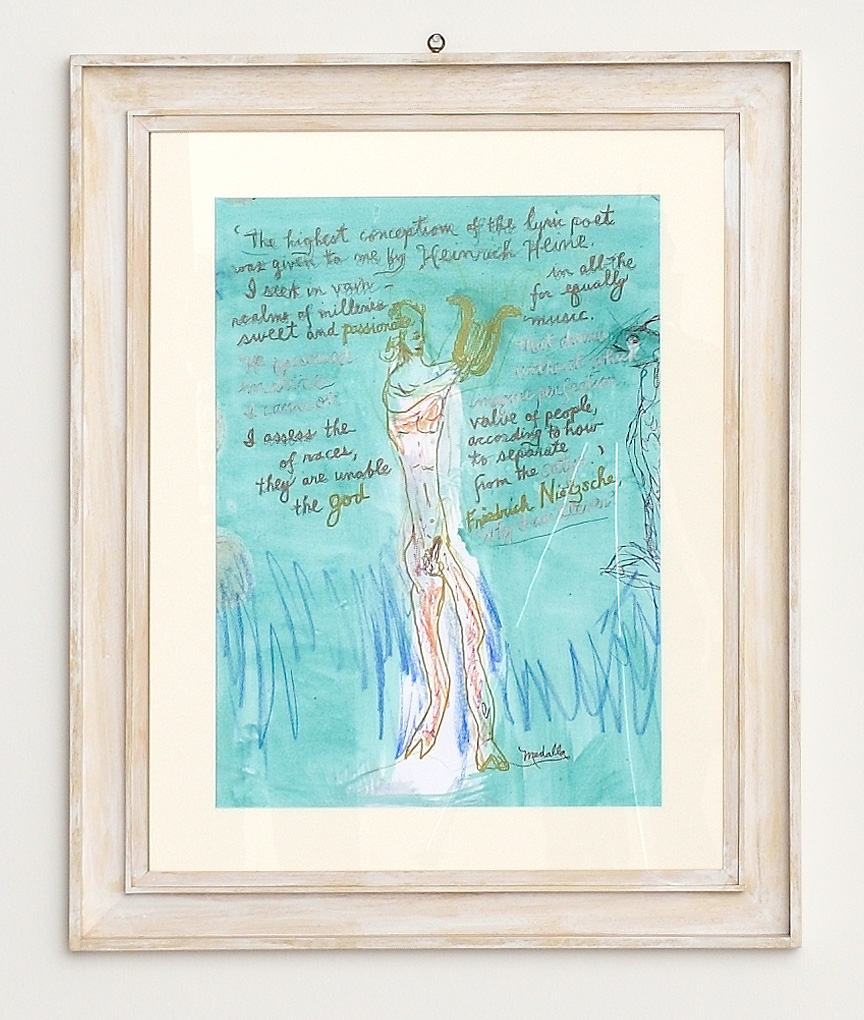 'The highest conception of the lyric poet
was given to me by Heinrich Heine.
I seek in vain - in all the
realms of millenia for equally
sweet and passionate music.
He possessed that divine
malice without which
I cannot imagine perfection.
I assess the value of people,
of races, according to how
they are unable to separate
the god from the satyr.'
Friedrich Nietzsche,
Medalla